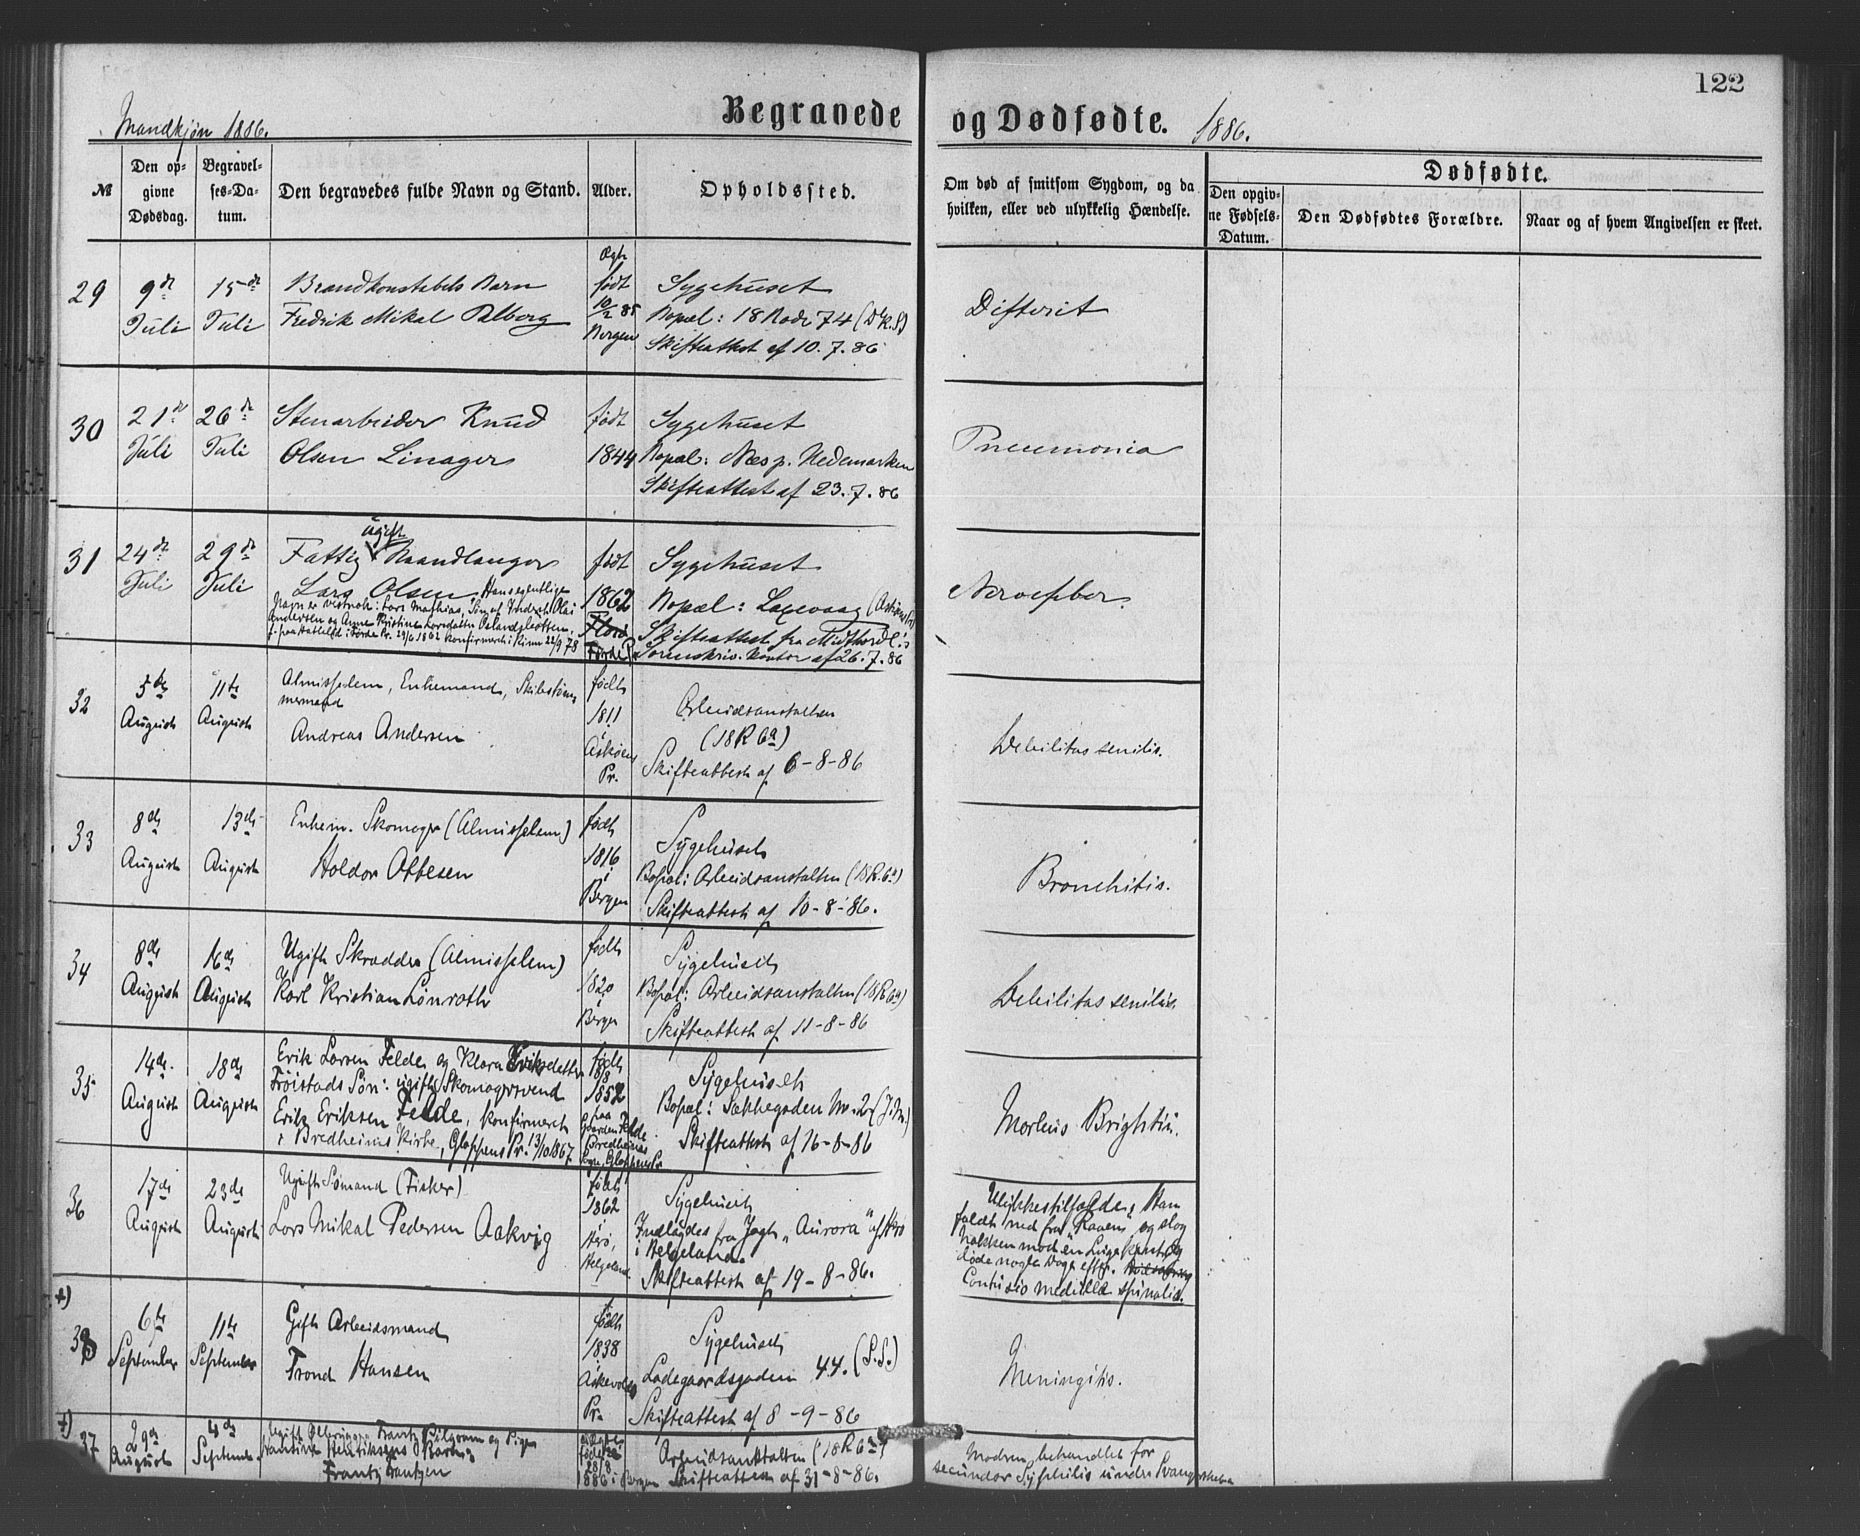 122
Mandkjøn 1886.
Begravede og Dødfødte. 1886.
№
Den op-
givne
Dødsdag.
Begravel-
ses-Da-
tum.
Den begravedes fulde Navn og Stand.
Alder.
Opholdssted.
Om død af smitsom Sygdom, og da
hvilken, eller ved ulykkelig Hændelse.
Dødfødte.
Den opgiv-
ne Fødsels-
Datum.
Den Dødfødtes Forældre.
Naar og af hvem Angivelsen er skeet.
29
9de
Juli
15de
Juli
Brandkonstabels Barn
Fredrik Mikal Palberg
Ægte
født
10/2 85
Bergen
Sygehuset
Bopæl: 18 Rode 74 (D.K.S)
Skifteattest af 10.7.86
Difterit
30
21de
Juli
26de
Juli
Stenarbeider Knud
Olsen Linager
født
1844
Sygehuset
Bopæl: Næs p. Hedemarken
Skifteattest af 23.7.86
Pneumonia
31
24de
Juli
29de
Juli
ugift
Fattig Haandlanger
Lars Olsen Hans egentlige
Navn er vistnok: Lars Mathias, Søn af Inderst Olai
Andersen og Anne Kjistine Larsdatter
f. paa Hatleld i Førde Pr. 29/6 1862 konfirmeret i Kinn 22/9 78
født
1862
Florø
Førde Pr
Sygehuset
Bopæl: Laxevaag
Skifteattest fra Midthordl's
Sorenskriv. Kontor af 26.7.86
Nervefeber.
32
5te
August
11te
August
Almisselem, Enkemand,
mermand
Andreas Andersen
født
1811
i
Askøens
Pr.
Arbeidsanstalten
(18 R 6a)
Skifteattest af 6-8-86
Debilitas senilis.
33
8de
August
13de
August
Enkem. Skomager (Almisselem)
Holdor Ottesen
født
1816
i
Bergen
Sygehuset
Bopæl: Arbeidsanstalten (18 R. 6a)
Skifteattest af 10-8-86.
Bronchitis.
34
8de
August
16de
August
Ugift Skrædder (Almisselem)
Karl Kristian Lønroth
født
1820
i
Bergen
Sygehuset
Bopæl: Arbeidsanstalten (18 R 6a)
Skifteattest af 11-8-86
Debilitas senilis
35
14de
August
18de
August
Erik Larsen Felde og Klara Eriksdatter
Frøistads Søn: ugift Skomagersvend
Erik Eriksen Felde, konfirmeret
i Bredheims Kirke, Gloppens Pr. 13/10 1867
født
1852
paa
Gaarden Felde
Bredheims
Sogn, Gloppens Pr
Sygehuset
Bopæl: Sækkegaden No. 2
Skifteattest af 16-8-86
Morbus Brightii.
36
17de
August
23de
August
Ugift Sømand (Fisker)
Lars Mikal Pedersen Aakvig
født
1862
i
Herø,
Helgeland
Sygehuset
Indlagdes fra Jagt "Aurora" af Herø
i Helgeland.
Skifteattest af 19-8-86.
Ulykkestilfælde, Han
faldt ned fra "Raaen" og slog
Nakken mod en Lugekant og
døde nogle Dage efter.
Contusio medullæ spinalis.
+)
38
6te
September
11te
September
Gift Arbeidsmand
Trond Hansen
født
1838
i
Askevolds
Pr.
Sygehuset
Ladegaardsgaden 44. (S.S.)
Skifteattest af 8-9-86
Meningitis.
+)
37
29de
August
4de
September
Ugift Frantz Pilgram og Pige
Hantine Henriksens Barn:
Frantz Frantzen
uægte
født
28/8
1886 i Bergen
Arbeidsanstalten (18 R 6a)
Skifteattest af 31-8-86.
Modren behandlet for
secundær Syphilis under Svangerskabet